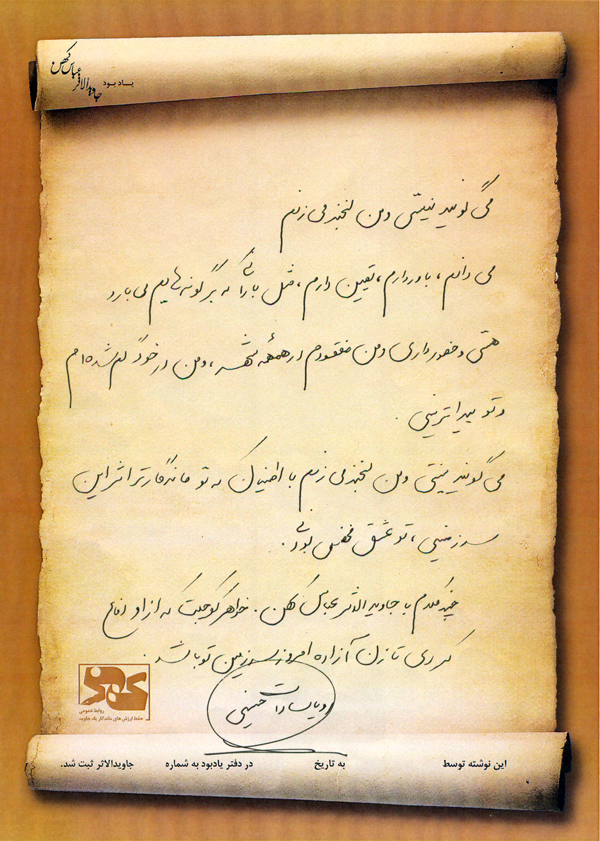 یاد بود
جاویدالاثر عباس کهن
می گویند نیستی و من لبخند می زنم
می دانم ، باور دارم ، یقین دارم ، مثل بارانی که بر گونه هایم می بارد
هستی و حضور داری و من مفقودم در همهمه شهر ، و من در خود گم شده ام
و تو پیداترینی .
می گویند نیستی و من لبخند می زنم با اطمینان که تو ماندگارتر اثر این
سرزمینی ، تو عشق محض بودی .
چند کلام با جاوید الاثر عباس کهن . خواهر کوچکت که از او دفاع
کردی تا زن آزاده امروز سرزمین تو باشد .
سادات حسینی
کهن
روابط عمومی
حفظ ارزش های ماندگار یک حماسه
این نوشته توسط به تاریخ در دفتر یادبود به شماره جاویدالاثر ثبت شد.